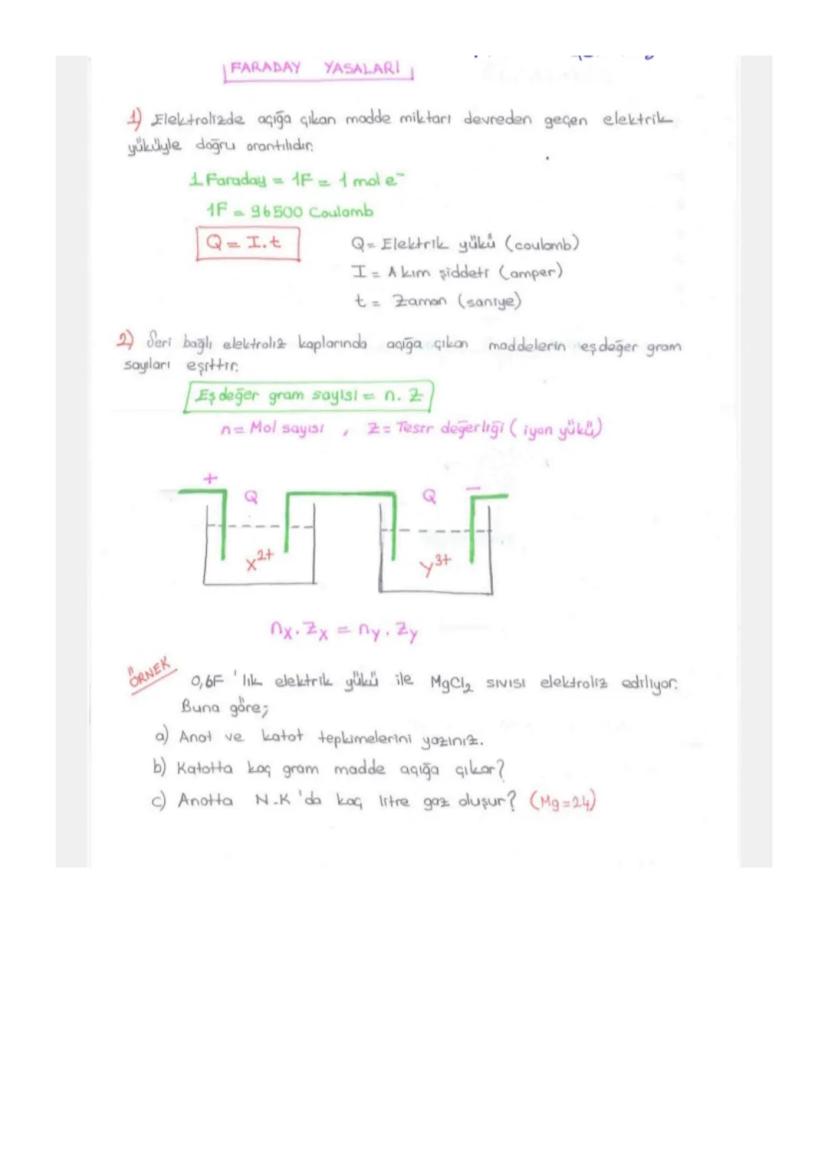 FARADAY YASALARI
1) Elektrolizde açığa çıkan madde miktarı devreden geçen elektrik
yüküyle doğru orantılıdır.
1 Faraday = 1F = 1 mol e⁻
1F = 96500 Coulomb
Q = I.t
Q = Elektrik yükü (coulomb)
I = Akım şiddeti (amper)
t = Zaman (saniye)
2) Seri bağlı elektroliz kaplarında açığa çıkan maddelerin eşdeğer gram
sayıları eşittir.
Eşdeğer gram sayısı = n. Z
n = Mol sayısı , Z = Tesir değerliği ( iyon yükü)
+ Q Q −
X²⁺ Y³⁺
nx. Zx = ny. Zy
ÖRNEK
0,6F 'lık elektrik yükü ile MgCl₂ sıvısı elektroliz ediliyor.
Buna göre;
a) Anot ve katot tepkimelerini yazınız.
b) Katotta kaç gram madde açığa çıkar?
c) Anotta N.K 'da kaç litre gaz oluşur? (Mg=24)